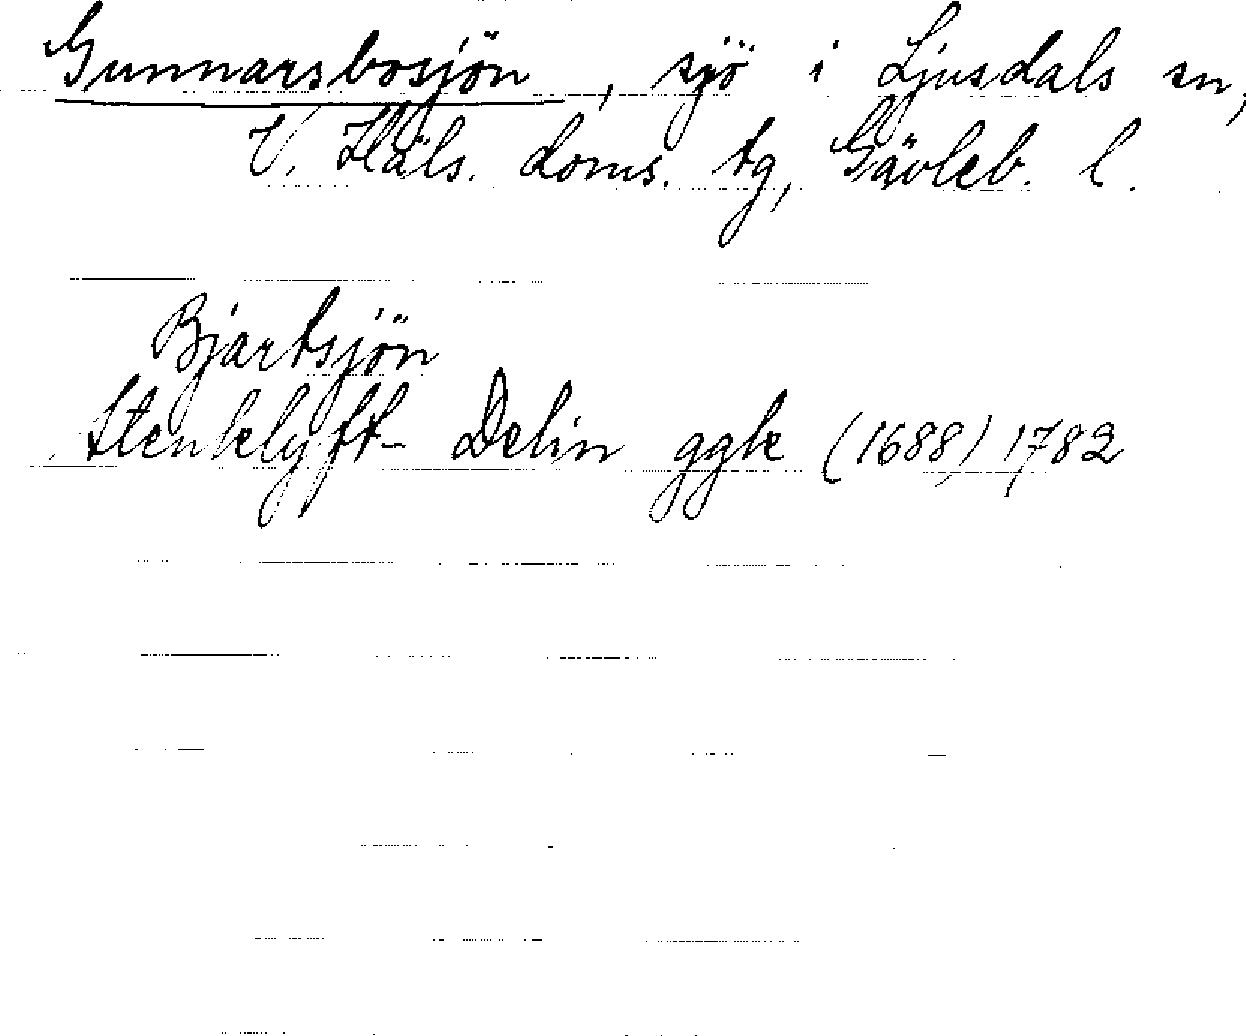 Gunnarsbosjön, sjö i Ljusdals sn,
V. Häls. doms. tg, Gävleb. l.
Bjartsjön
Stenkelyft- Delin ggk (1688) 1782